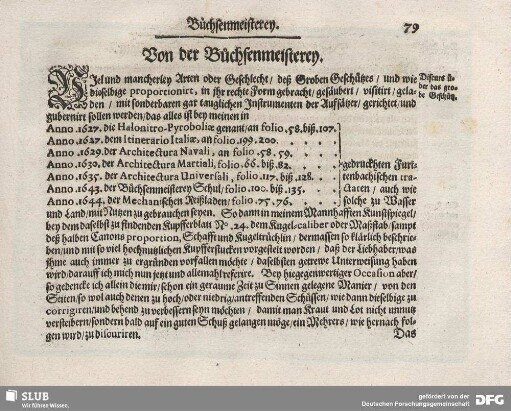 Büchsenmeisterey.
79
Von der Büchsenmeisterey.
VJel und mancherley Arten oder Geschlecht / deß Groben Geschützes / und wie
dieselbige proportionirt, in ihr rechte Form gebracht / gesäubert / visitirt / gela-
den / mit sonderbaren gar tauglichen Instrumenten der Aufsätzer / gerichtet / und
gubernirt sollen werden / das alles ist bey meinen in
Discurs ü-
ber das gro-
be Geschütz.
Anno. 1627. die Halonitro-Pyroboliæ genant / an folio. 58. biß. 107.
Anno. 1627. dem Itinerario Italiæ, an folio. 199. 200.
Anno. 1629. der Architectura Navali, an folio. 58. 59.
Anno. 1630. der Architectura Martiali, folio. 66. biß. 82.
Anno. 1635. der Architectura Universali, folio. 117. biß. 128.
Anno. 1643. der Büchsenmeisterey Schul / folio. 100. biß. 135.
Anno. 1644. der Mechanischen Reißladen / folio. 75. 76.
gedruckten Furt-
tenbachischen tra-
ctaten / auch wie
solche zu Wasser
und Land / mit Nutzen zu gebrauchen seyen. So dann in meinem Mannhafften Kunstspiegel /
bey dem daselbst zu findenden Kupfferblatt No. 24. dem Kugel-caliber oder Maßstab / sampt
deß halben Canons proportion, Schafft und Kugeltrüchlin / dermassen so klärlich beschrie-
ben / und mit so viel hochnutzlichen Kupfferstucken vorgestelt worden / daß der Liebhaber / was
ihme auch immer zu ergründen vorfallen möchte / daselbsten getrewe Unterweisung haben
wird / darauff ich mich nun jetzt und allemahl referire. Bey hiegegenwertiger Occasion aber /
so gedencke ich allein die mir / schon ein geraume Zeit zu Sinnen gelegene Manier / von den
Seiten / so wol auch denen zu hoch / oder nidrig / antreffenden Schüssen / wie dann dieselbige zu
corrigiren / und behend zu verbessern seyn möchten / damit man Kraut und Lot nicht unnutz
versteibern / sondern bald auf ein guten Schuß gelangen möge / ein Mehrers / wie hernach fol-
gen wird / zu discuriren.
Das
SLUB
Wir führen Wissen.
gefördert von der
Deutschen Forschungsgemeinschaft
DFG